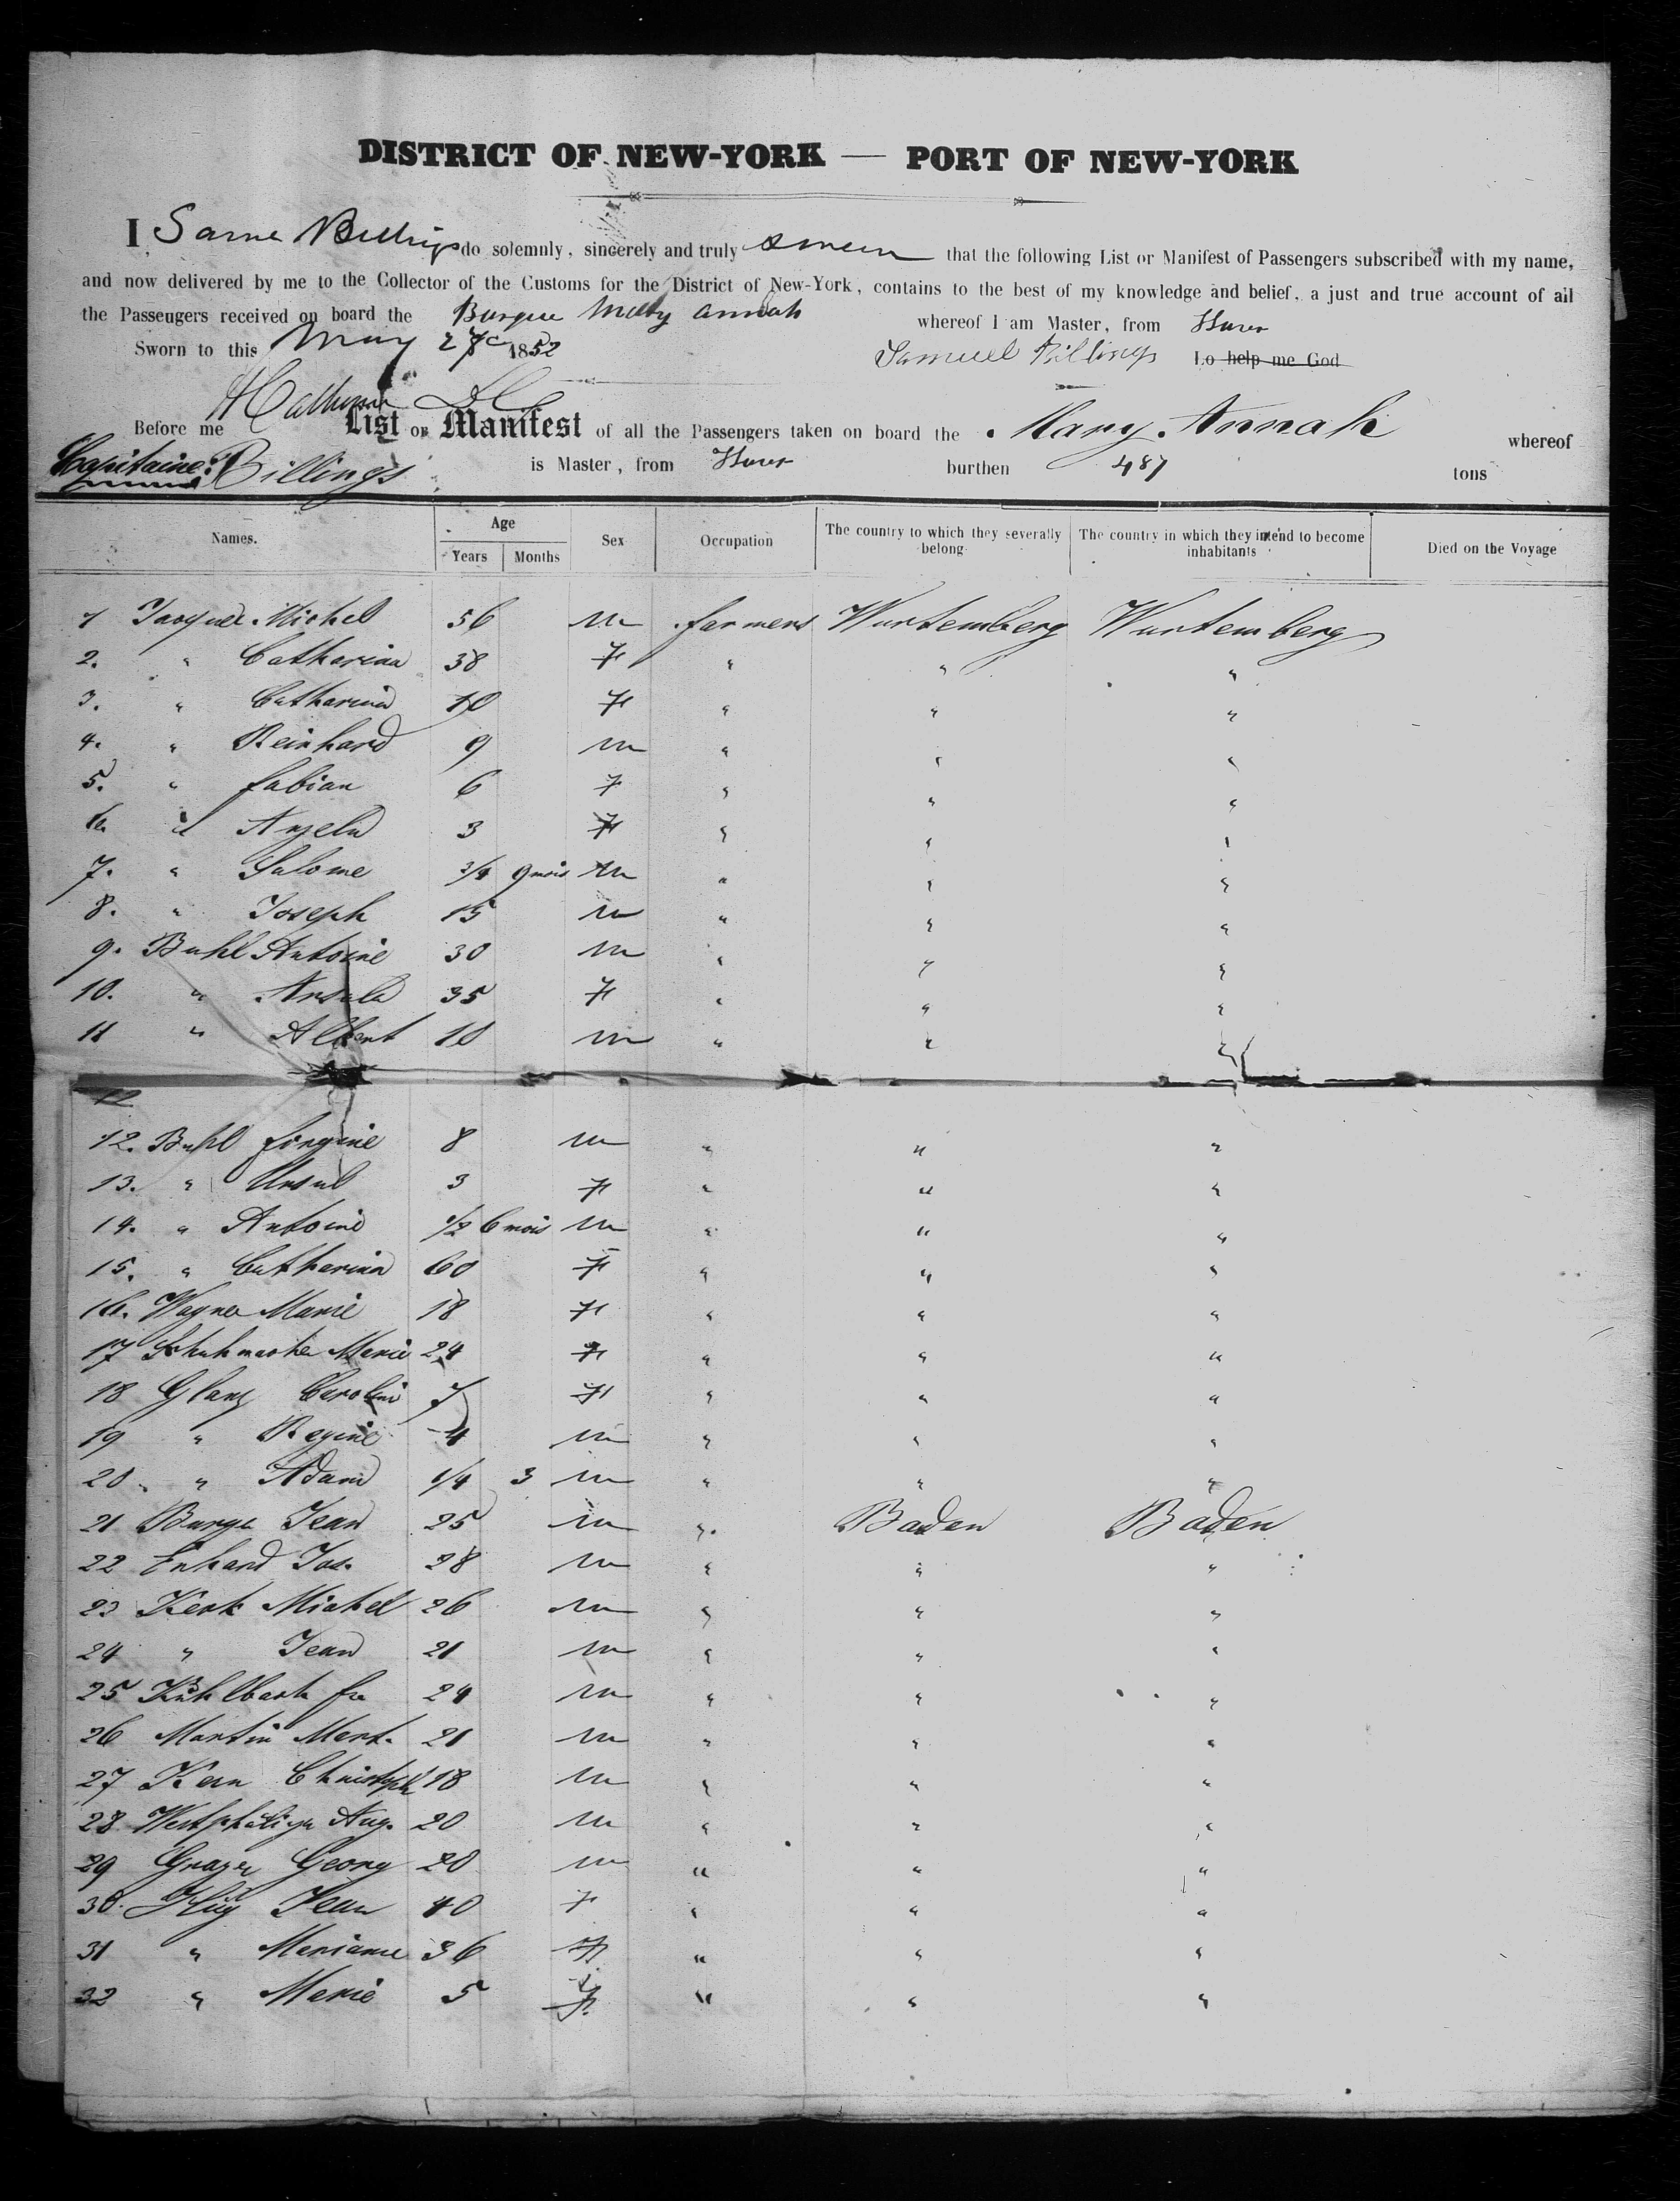 DISTRICT OF NEW-YORK — PORT OF NEW-YORK
I Saml Billings do solemnly, sincerely and truly swear that the following List or Manifest of Passengers subscribed with my name,
and now delivered by me to the Collector of the Customs for the District of New-York, contains to the best of my knowledge and belief, a just and true account of all
the Passengers received on board the Barque Mary Annah whereof I am Master, from Havre
Sworn to this May 27 1852 Samuel Billings So help me God
Before me
List or Manifest of all the Passengers taken on board the Mary Annah whereof
Capitaine: Billings is Master, from Havre burthen 487 tons
Names. Age Years Months Sex Occupation The country to which they severally belong The country in which they intend to become inhabitants Died on the Voyage
1 Michel 56 m farmers Wurtemberg Wurtemberg
2. " Catharina 38 F " " "
3. " Catharina 10 F " " "
4. " Reinhard 9 m " " "
5. " Fabian 6 F " " "
6. " Angela 3 F " " "
7. " Salome 3/4 9 mois m " " "
8. " Joseph 15 m " " "
9. Buhl Antoine 30 m " " "
10. " Ursula 35 F " " "
11 " Albert 10 m " " "
12
12. Buhl 8 m " " "
13. " Ursul 3 F " " "
14. " Antoine 1/2 6 mois m " " "
15. " Catharina 60 F " " "
16. Wagner Marie 18 F " " "
17 Schuhmacher Marie 24 F " " "
18 Glanz Caroline 7 F " " "
19 " Regine 4 m " " "
20. " Adam 1/4 3 m " " "
21 Burger Jean 25 m " Baden Baden
22 Erhard Jos. 28 m " " "
23 Kerk Michel 26 m " " "
24 " Jean 21 m " " "
25 Kühlbach fr 24 m " " "
26 Martin Mart. 21 m " " "
27 Kern Christoph 18 m " " "
28 Aug. 20 m " " "
29 Georg 20 m " " "
30. Hug Jean 40 F " " "
31 " Mariane 36 F " " "
32 " Marie 5 F. " " "